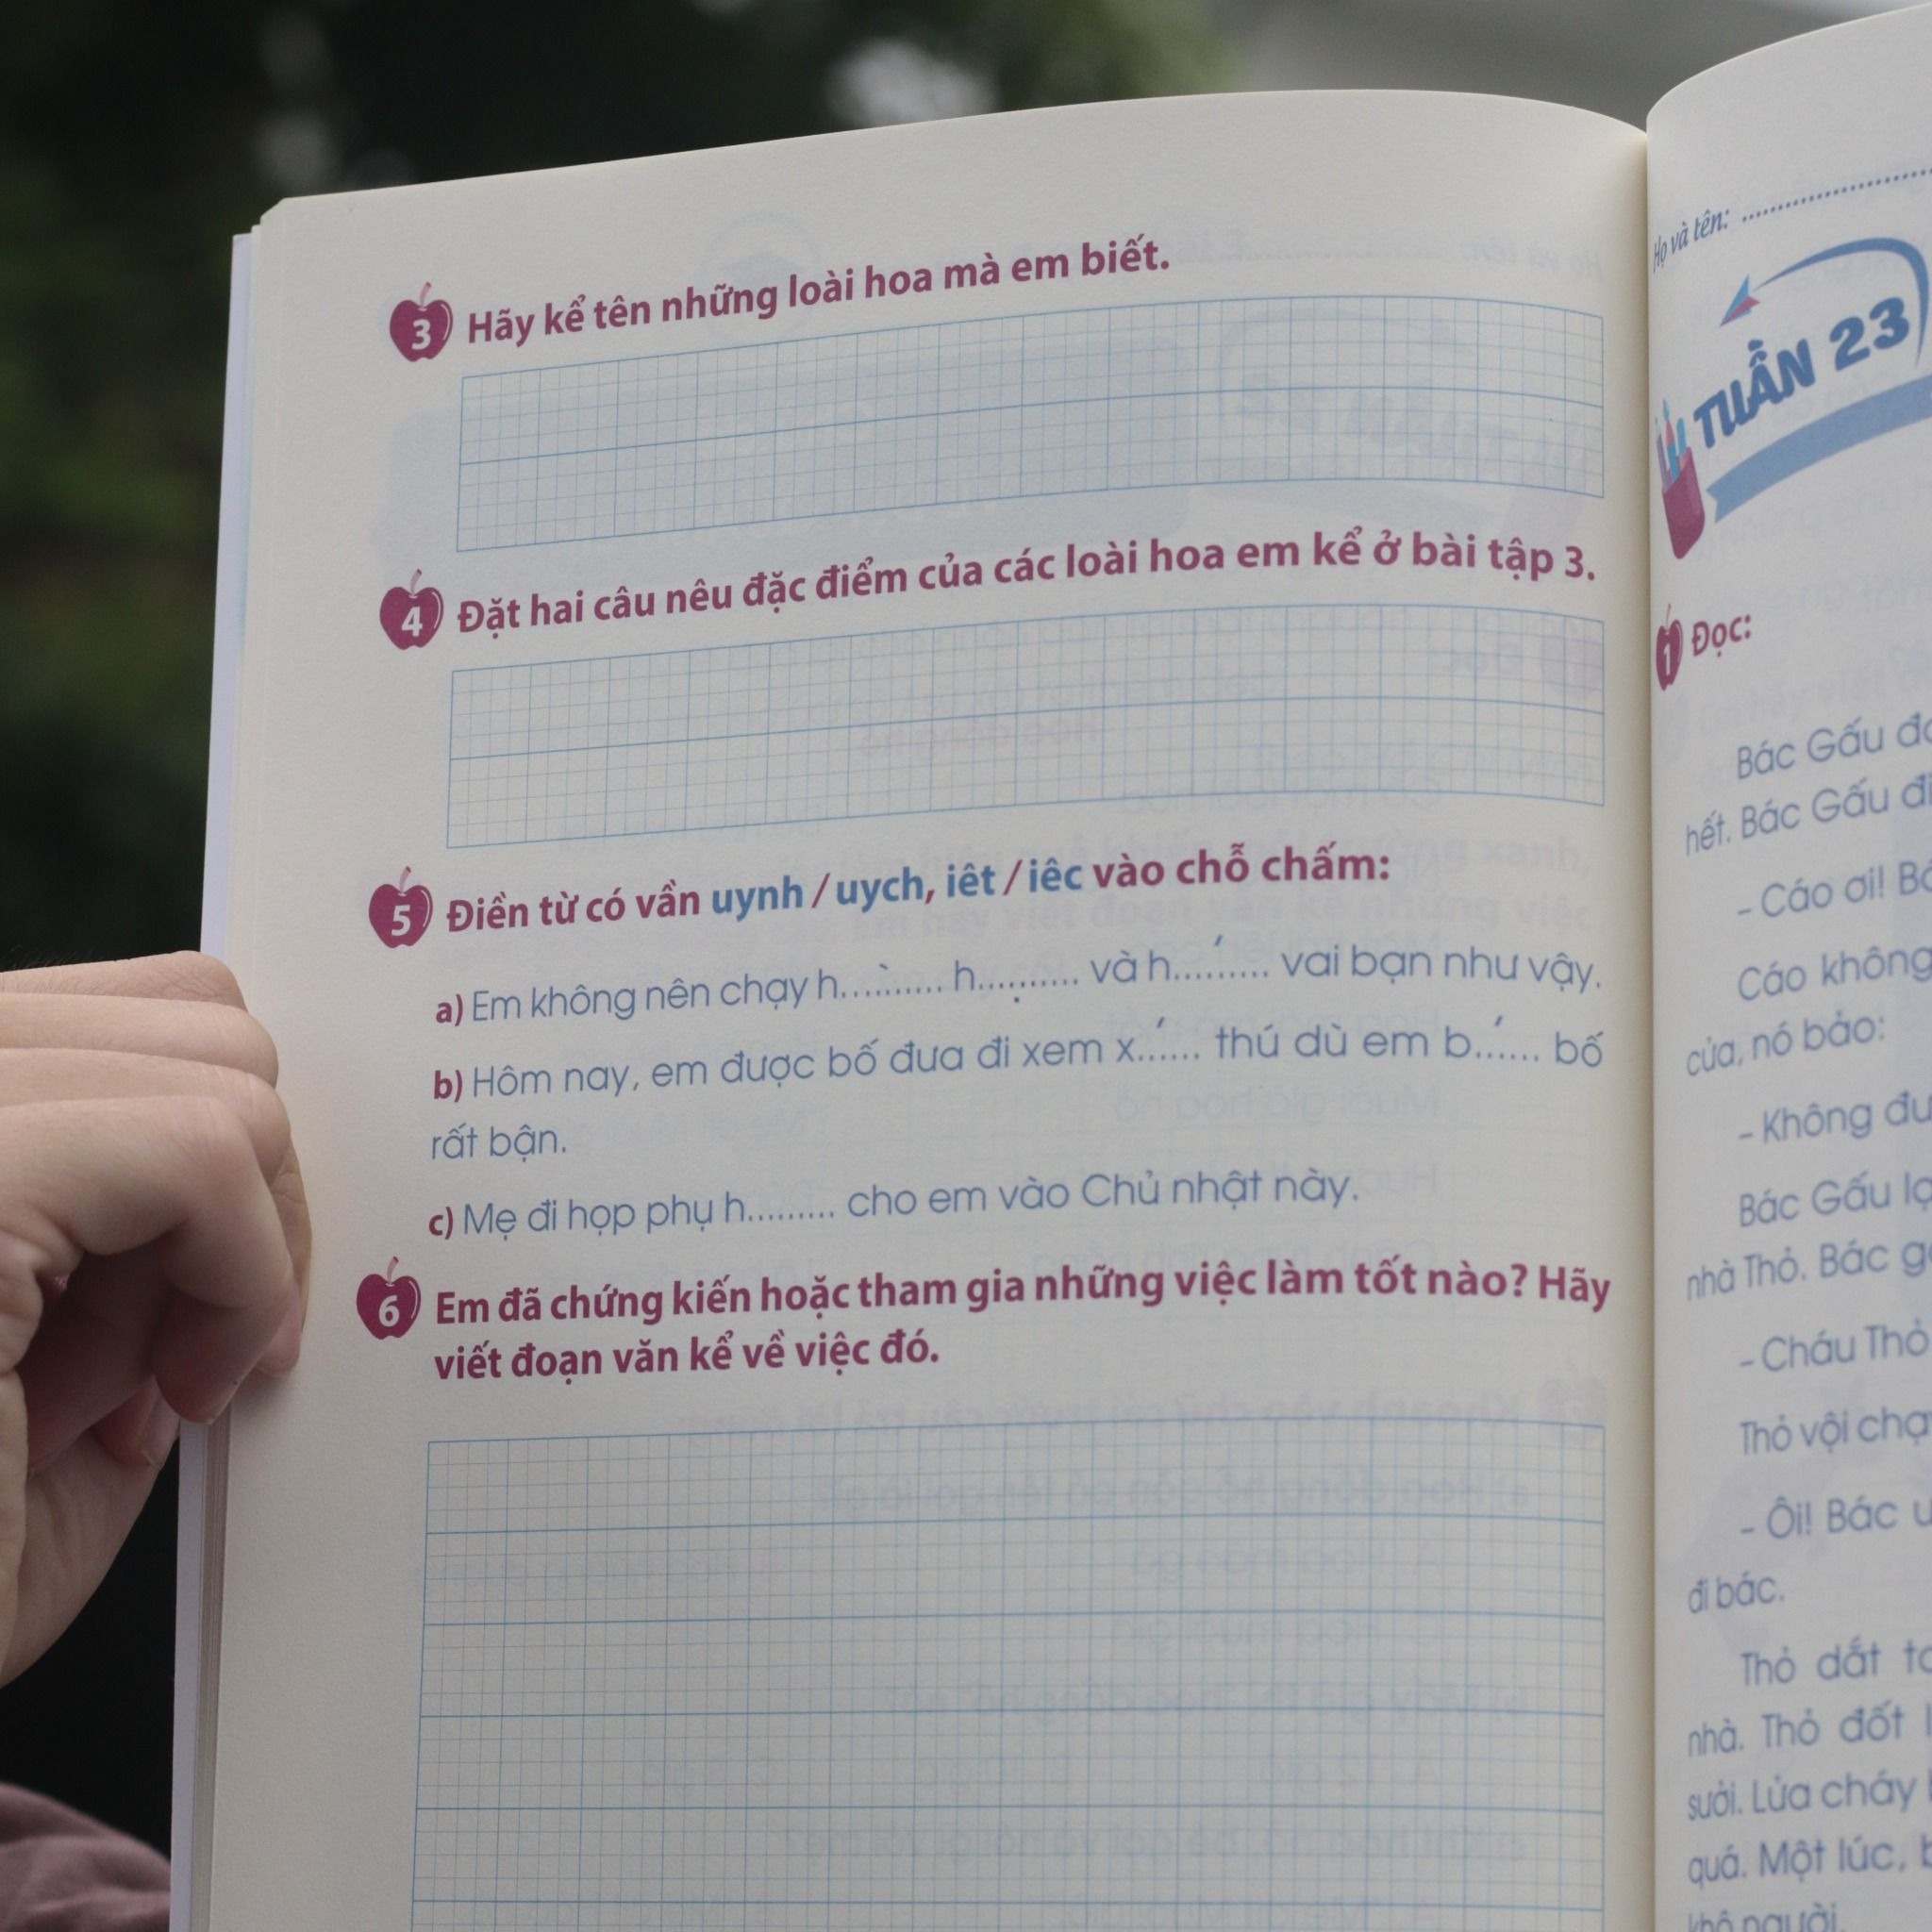 3 Hãy kể tên những loài hoa mà em biết.
4 Đặt hai câu nêu đặc điểm của các loài hoa em kể ở bài tập 3.
5 Điền từ có vần uynh / uych, iêt / iêc vào chỗ chấm:
a) Em không nên chạy h....̀...... h....̣...... và h....́..... vai bạn như vậy.
b) Hôm nay, em được bố đưa đi xem x..́.... thú dù em b..́.... bố
rất bận.
c) Mẹ đi họp phụ h......... cho em vào Chủ nhật này.
6 Em đã chứng kiến hoặc tham gia những việc làm tốt nào? Hãy
viết đoạn văn kể về việc đó.
Họ và tên: ........................
TUẦN 23
1 Đọc:
Bác Gấu
hết. Bác Gấu
– Cáo ơi!
Cáo không
cửa, nó bảo:
– Không
Bác Gấu
nhà Thỏ. Bác
– Cháu Thỏ
Thỏ vội
– Ôi! Bác
đi bác.
Thỏ dắt
nhà. Thỏ đốt
sưởi. Lửa cháy
quá. Một lúc,
khô người.